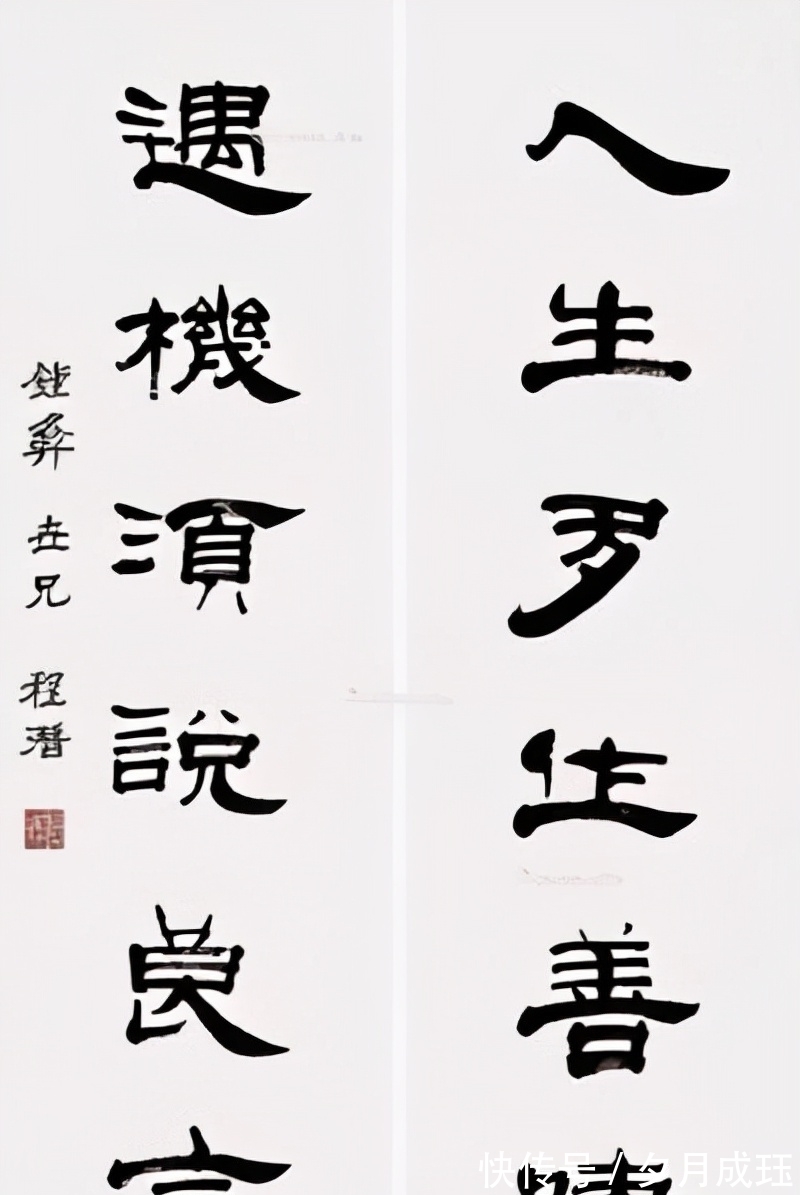 人生多作善
遇機須說良
彝 世兄 程潛
快传号 / 夕月成珏